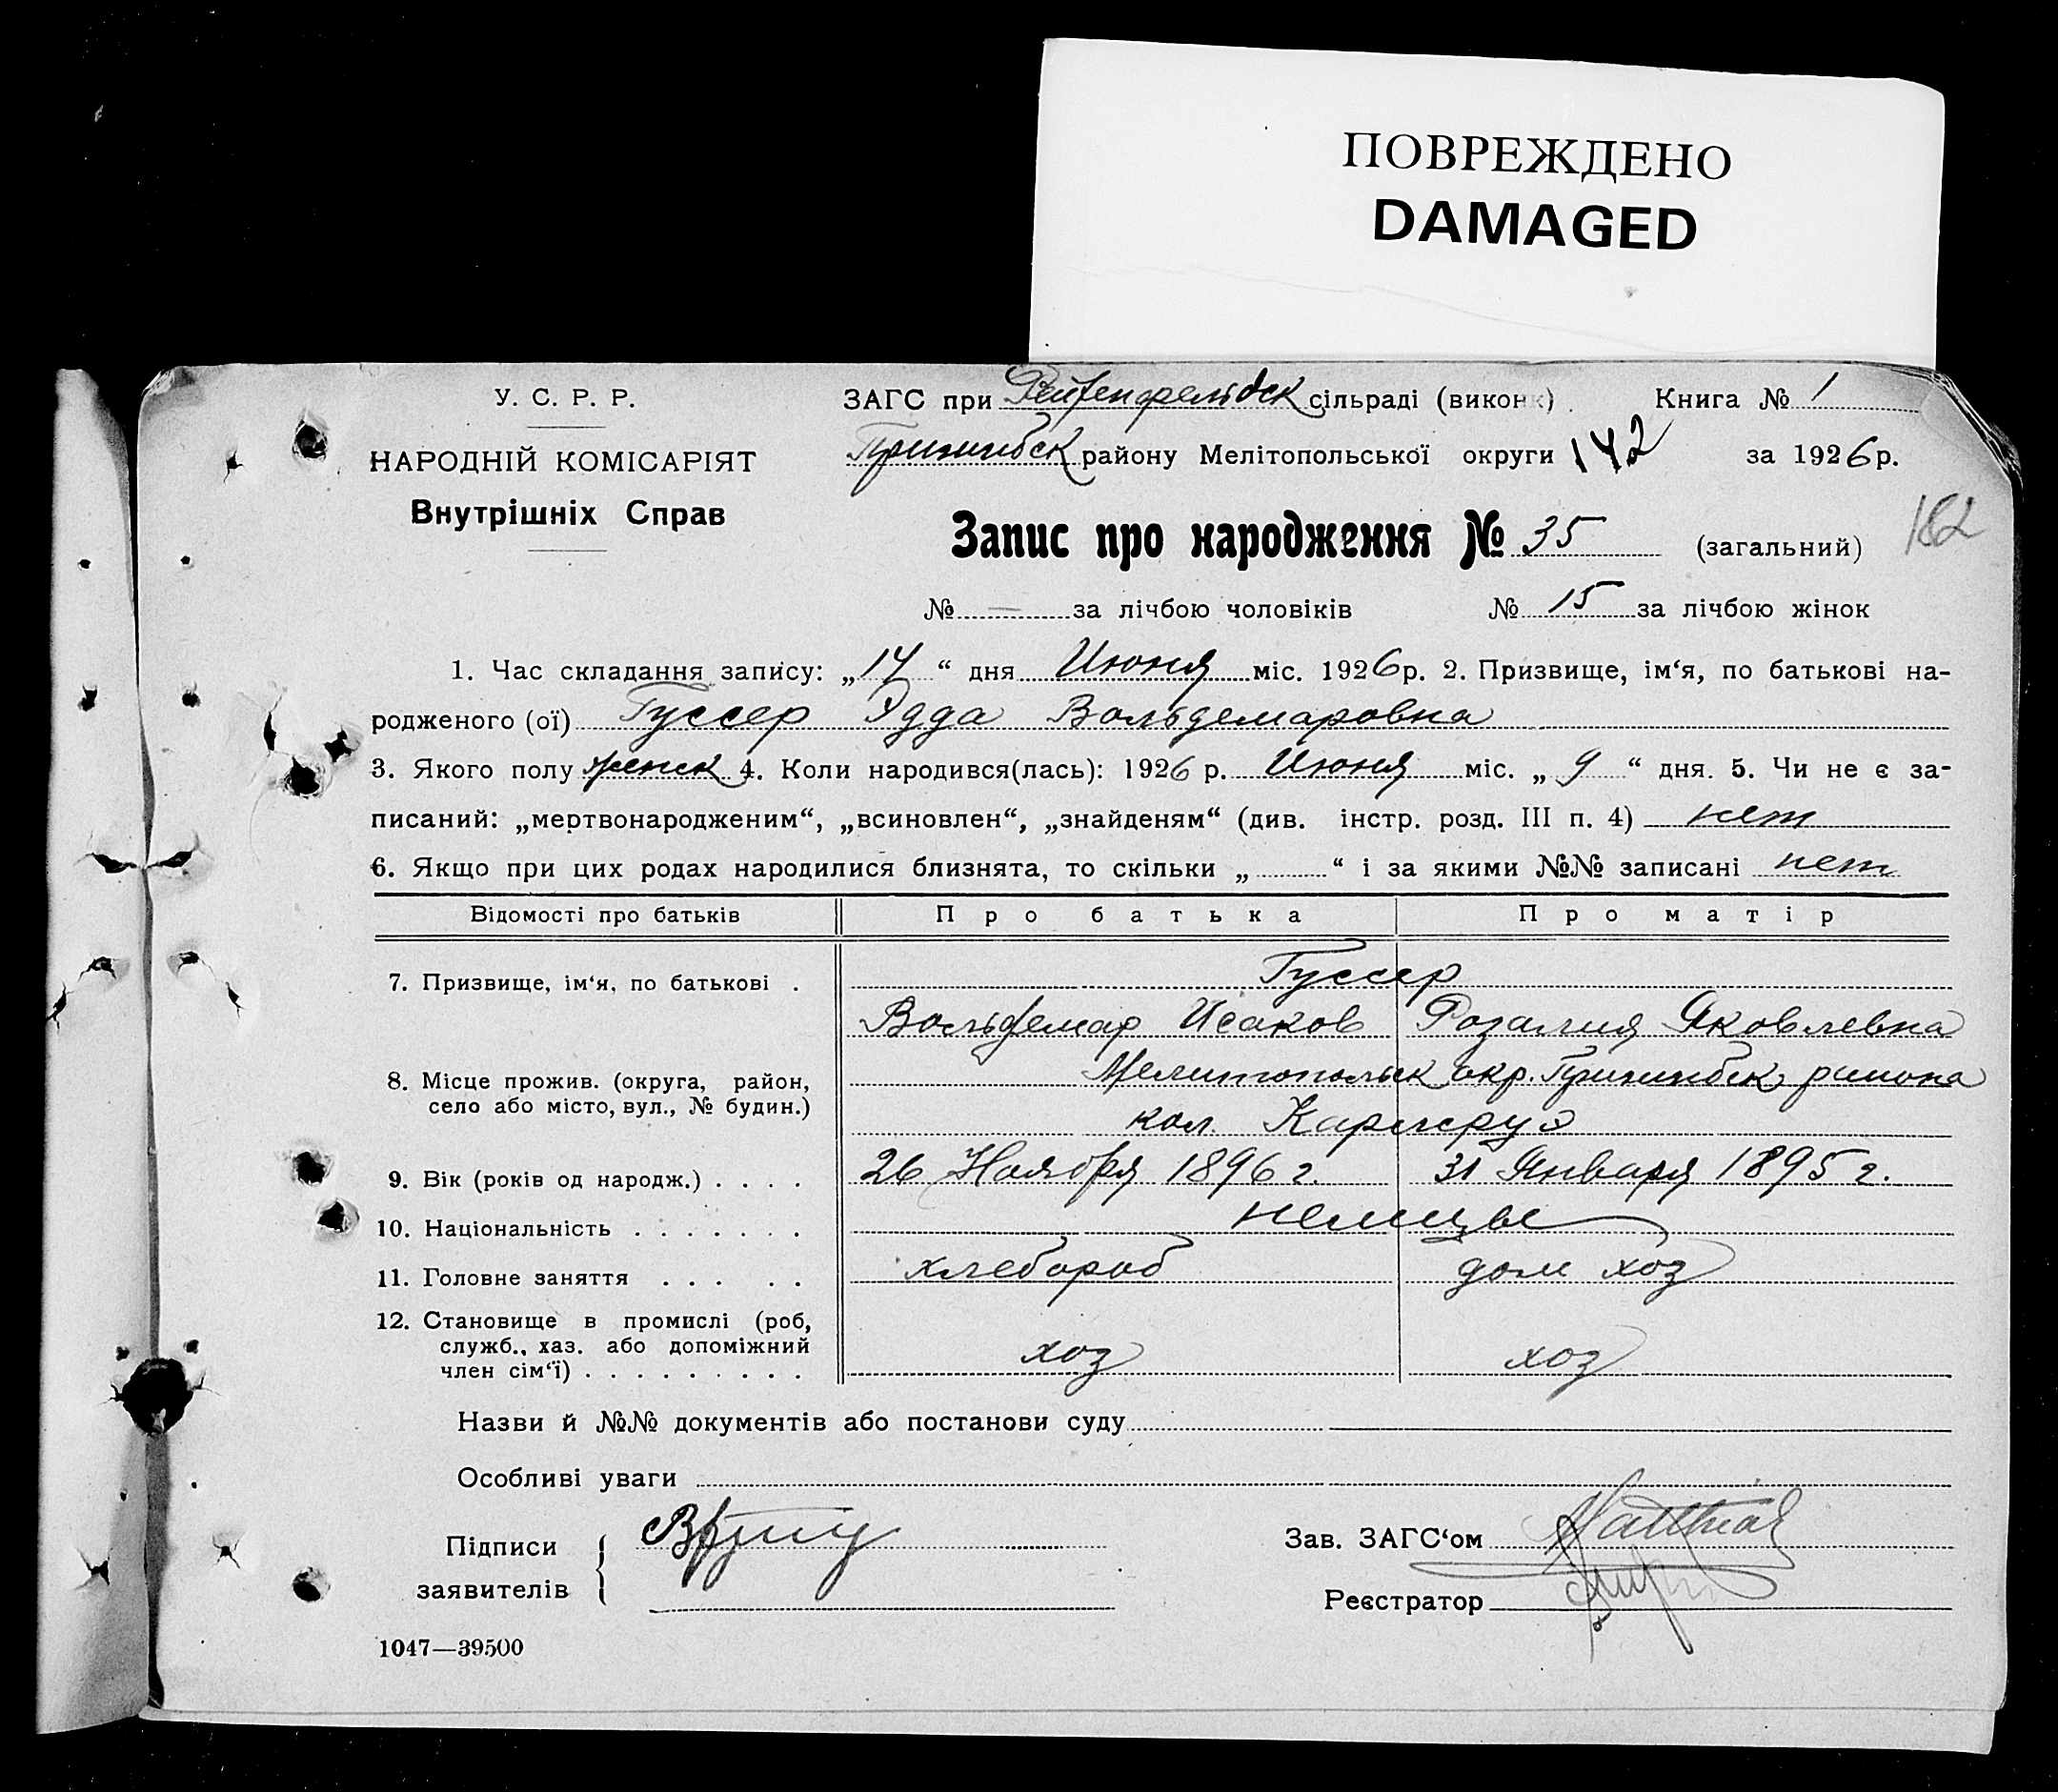 ПОВРЕЖДЕНО
DAMAGED
У. С. Р. Р.
НАРОДНІЙ КОМІСАРІЯТ
Внутрішніх Справ
ЗАГС при Рейхенфельдск сільраді (викон ) Книга № 1
Пришибск району Мелітопольської округи 142 за 1926 р.
Запис про народження № 35 (загальний)
182
№ — за лічбою чоловіків № 15 за лічбою жінок
1. Час складання запису: „14“ дня Июня міс. 1926 р. 2. Призвище, ім‘я, по батькові на-
родженого (ої) Гуссер Эдда Вольдемаровна
3. Якого полу женск 4. Коли народився(лась): 1926 р. Июня міс. „9“ дня. 5. Чи не є за-
писаний: „мертвонародженим“, „всиновлен“, „знайденям“ (див. інстр. розд. III п. 4) нет
6. Якщо при цих родах народилися близнята, то скільки „ “ і за якими №№ записані нет
Відомості про батьків Про батька Про матір
7. Призвище, ім‘я, по батькові . Гуссер
Вольдемар Исаков Розалия Яковлевна
8. Місце прожив. (округа, район, село або місто, вул., № будин.) Мелитопольск окр. Пришибск района
кол. Карлсруэ
9. Вік (років од народж.) . . . . 26 Ноября 1896 г. 31 Января 1895 г.
10. Національність . . . . . . . немцы
11. Головне заняття . . . . . хлебороб дом хоз
12. Становище в промислі (роб,
служб., хаз. або допоміжний
член сім‘ї) . . . . . . . . . хоз хоз
Назви й №№ документів або постанови суду
Особливі уваги
Підписи
заявителів
Зав. ЗАГС‘ом Matthias
Реєстратор
1047—39500